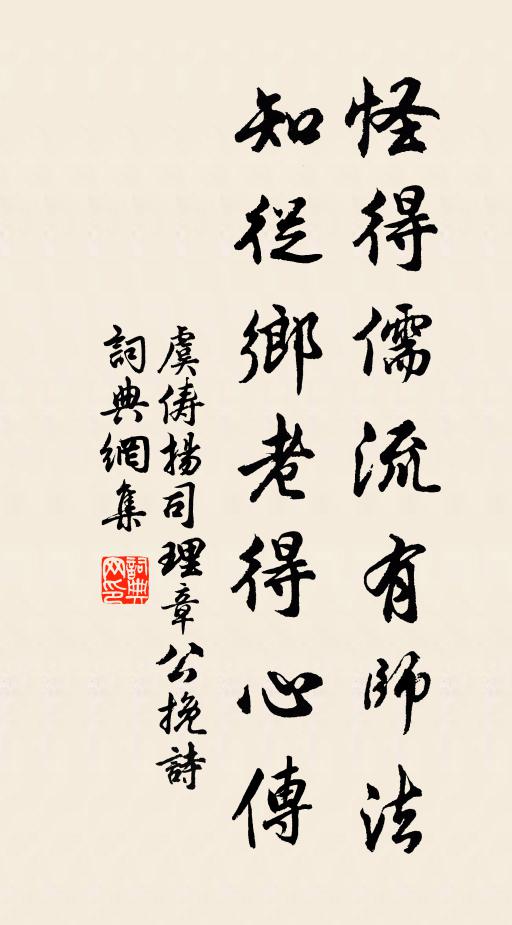 怪得儒流有師法
知從鄉老得心傳
虞儔揚司理章公挽詩
詞典網集
詞典
网印